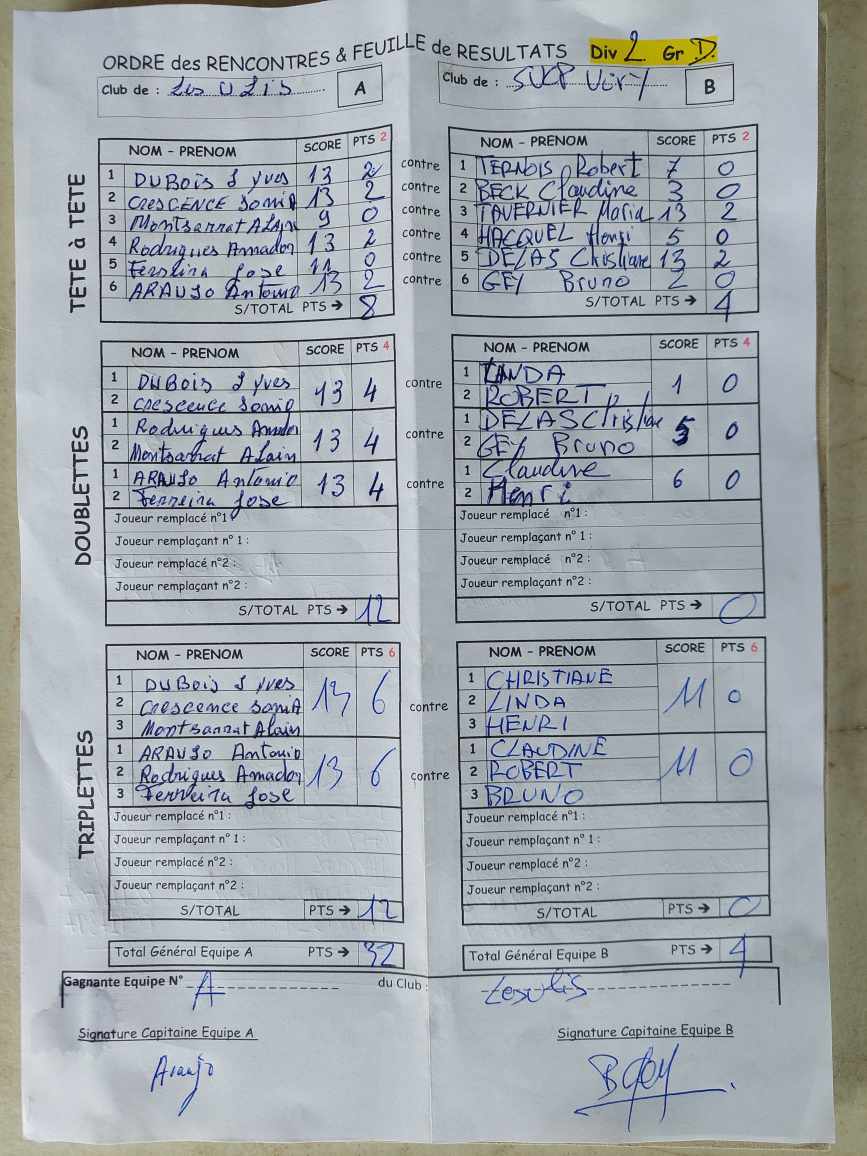 ORDRE des RENCONTRES & FEUILLE de RESULTATS Div 2 Gr D.
Club de : Les ULIS A Club de : SUCP Viry B
TETE à TETE
NOM - PRENOM SCORE PTS 2 NOM - PRENOM SCORE PTS 2
1 DUBOIS J Yves 13 2 contre 1 TERNOIS Robert 7 0
2 CRESCENCE Soniq 13 2 contre 2 BECK Claudine 3 0
3 Montsarrat ALAin 9 0 contre 3 TAVERNIER Maria 13 2
4 Rodrigues Amador 13 2 contre 4 HACQUEL Henri 5 0
5 Ferreira Jose 11 0 contre 5 DELAS Christiane 13 2
6 ARAUJO Antonio 13 2 contre 6 GEY Bruno 2 0
S/TOTAL PTS → 8 S/TOTAL PTS → 4
DOUBLETTES
NOM - PRENOM SCORE PTS 4 NOM - PRENOM SCORE PTS 4
1 DUBOIS J Yves 13 4 contre 1 LINDA 1 0
2 Crescence Soniq 2 ROBERT
1 Rodrigues Amador 13 4 contre 1 DELAS Christiane 5 0
2 Montsarrat Alain 2 GEY Bruno
1 ARAUJO Antonio 13 4 contre 1 Claudine 6 0
2 Ferreira Jose 2 Henri
Joueur remplacé n°1 : Joueur remplacé n°1 :
Joueur remplaçant n° 1 : Joueur remplaçant n° 1 :
Joueur remplacé n°2 : Joueur remplacé n°2 :
Joueur remplaçant n°2 : Joueur remplaçant n°2 :
S/TOTAL PTS → 12 S/TOTAL PTS → 0
TRIPLETTES
NOM - PRENOM SCORE PTS 6 NOM - PRENOM SCORE PTS 6
1 DUBOIS J Yves 13 6 contre 1 CHRISTIANE 11 0
2 Crescence SoniA 2 LINDA
3 Montsarrat Alain 3 HENRI
1 ARAUJO Antonio 13 6 contre 1 CLAUDINE 11 0
2 Rodrigues Amador 2 ROBERT
3 Ferreira Jose 3 BRUNO
Joueur remplacé n°1 : Joueur remplacé n°1 :
Joueur remplaçant n° 1 : Joueur remplaçant n° 1 :
Joueur remplacé n°2 : Joueur remplacé n°2 :
Joueur remplaçant n°2 : Joueur remplaçant n°2 :
S/TOTAL PTS → 12 S/TOTAL PTS → 0
Total Général Equipe A PTS → 32 Total Général Equipe B PTS → 4
Gagnante Equipe N° A du Club : Lesulis
Signature Capitaine Equipe A Signature Capitaine Equipe B
Araujo